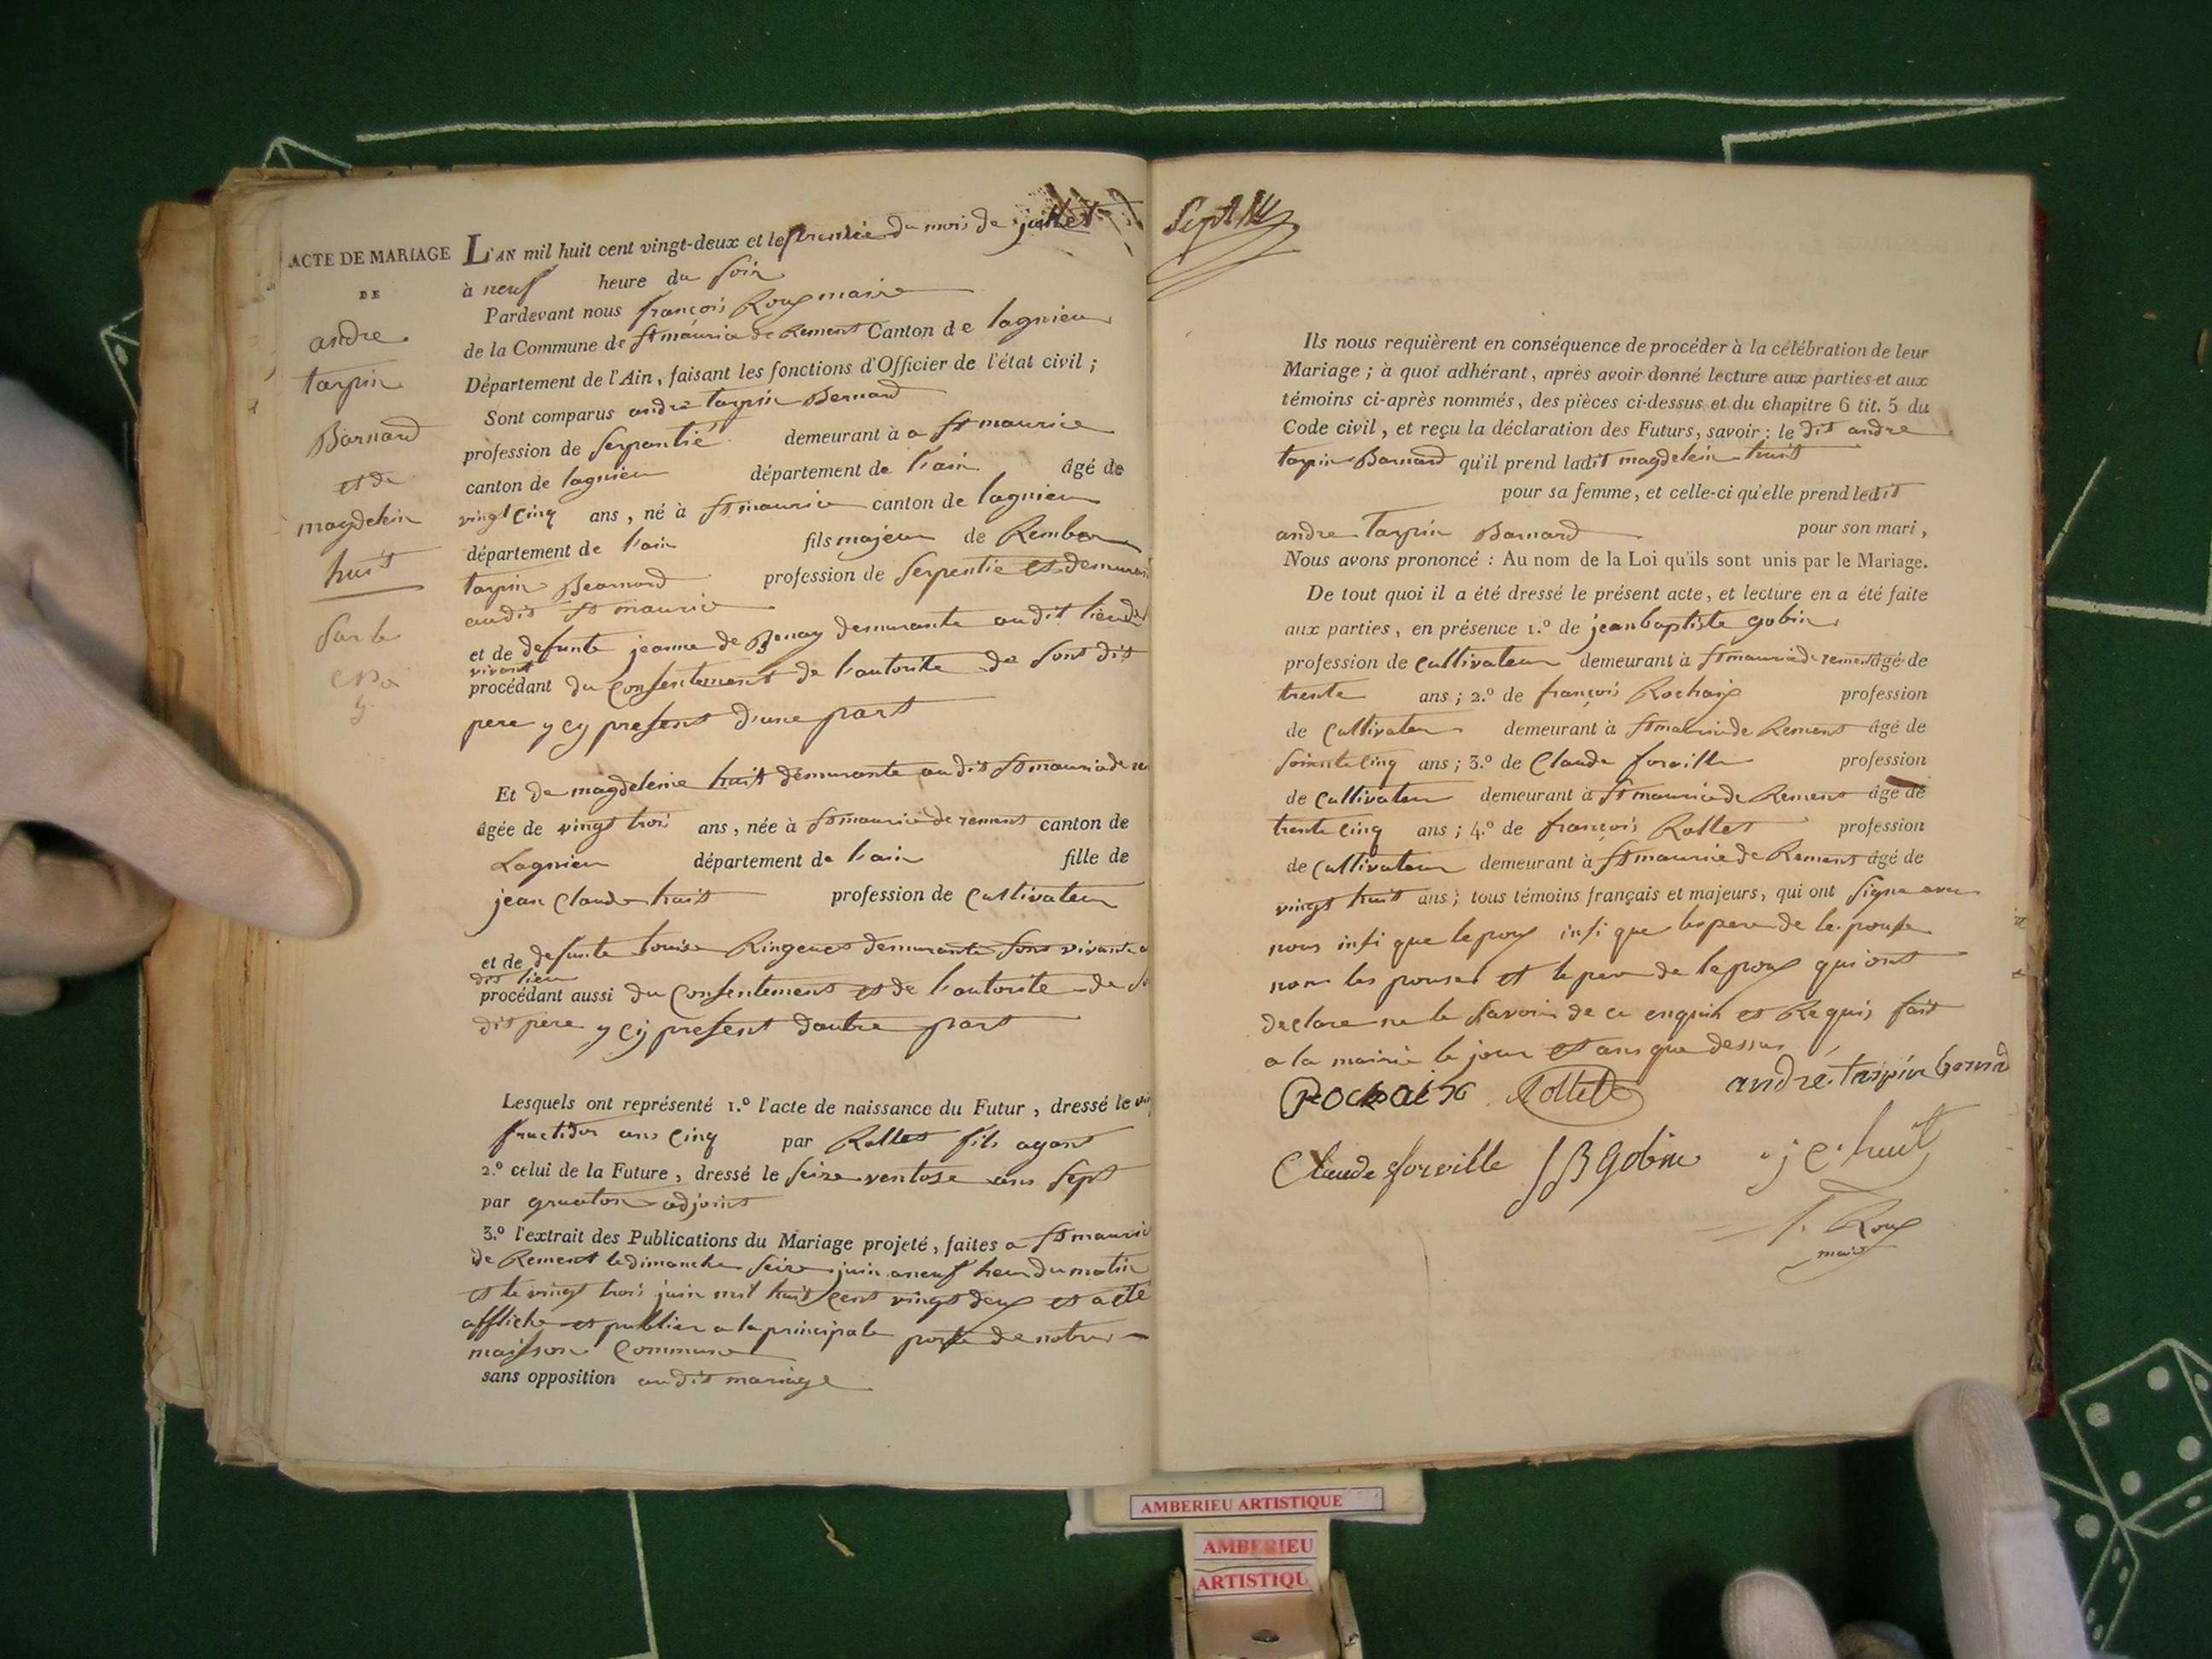 ACTE DE MARIAGE
DE
andre
tarpin
Barnard
et de
magdelein
huit
L'AN mil huit cent vingt-deux et le du mois de juillet
à neuf heure du soir
Pardevant nous françois Roux maire
de la Commune de st maurice de Remens Canton de lagnieu
Département de l'Ain, faisant les fonctions d'Officier de l'état civil ;
Sont comparus andre tarpin Bernard
profession de serpantié demeurant à a st maurice
canton de lagnieu département de l'ain âgé de
vingt cinq ans, né à st maurice canton de lagnieu
département de l'ain fils majeur de Rember
tarpin Bearnard profession de serpentie et demurant
audit st maurice
et de defunte jeanne de demurante audit lieu de
vivant
procédant du consentement de l'autorite de sont dit
pere y cy present d'une part
Et de magdeleine huit demurante audit st maurice de re
âgée de vingt trois ans, née à st maurice de remens canton de
Lagnieu département de l'ain fille de
jean Claude huit profession de Cultivateur
et de defunte louise demurante sont vivante a
dit lieu
procédant aussi du Consentement et de l'autorite de s
dit père y cy present dautre part
Lesquels ont représenté 1.º l'acte de naissance du Futur, dressé le
fructidor ans cinq par Rollet fils agant
2.º celui de la Future, dressé le seize ventose ans sept
par gruaton adjoint
3.º l'extrait des Publications du Mariage projeté, faites a st mauric
de Remens le dimanche seize juin a neuf heur du matin
et le vingt trois juin mil huit cent vingt deux et a ete
affliche et publier a la principale porte de notre
maisson Commune
sans opposition audit mariage
Ils nous requièrent en conséquence de procéder à la célébration de leur
Mariage ; à quoi adhérant, après avoir donné lecture aux parties et aux
témoins ci-après nommés, des pièces ci-dessus et du chapitre 6 tit. 5 du
Code civil, et reçu la déclaration des Futurs, savoir : le dit andre
tarpin Barnard qu'il prend ladit magdelein huit
pour sa femme, et celle-ci qu'elle prend ledit
andre Tarpin Barnard pour son mari,
Nous avons prononcé : Au nom de la Loi qu'ils sont unis par le Mariage.
De tout quoi il a été dressé le présent acte, et lecture en a été faite
aux parties, en présence 1.º de jean baptiste gobin
profession de cultivateur demeurant à st maurice de remens âgé de
trente ans ; 2.º de françois Rochaix profession
de Cultivateur demeurant à st maurice de Remens âgé de
soixente cinq ans ; 3.º de Claude forville profession
de Cultivateur demeurant à st maurice de Remens âgé de
trente cinq ans ; 4.º de françois Rollet profession
de Cultivateur demeurant à st maurice de Remens âgé de
vingt huit ans ; tous témoins français et majeurs, qui ont signe avec
nous insi que lepoux insi que le pere de lepouse
non les pouse et le pere de lepoux qui ont
declare ne le savoir de ce enquis et Requis fait
a la mairie le jour et ans que dessus
Rochaix Rollet andré tarpin bernard
Claude forville JB gobin j c huit
f. Roux
maire
AMBERIEU ARTISTIQUE
AMBERIEU
ARTISTIQU